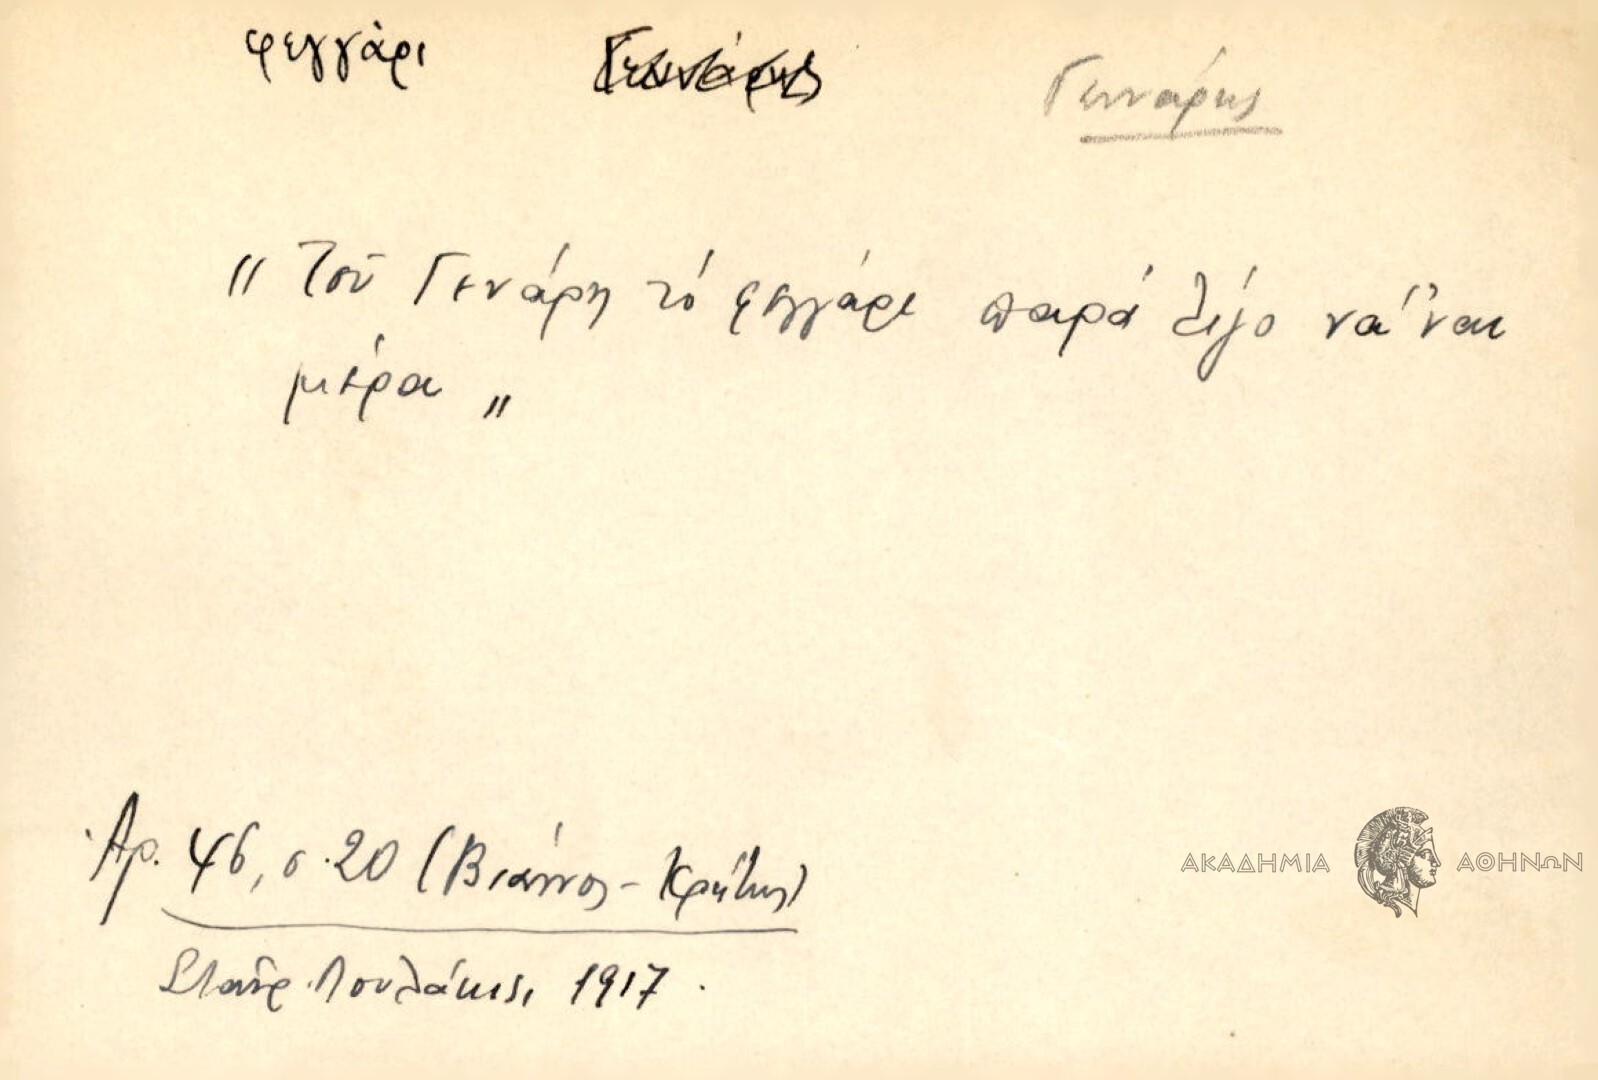 φεγγάρι Γεννάρης Γεννάρης
"Τοῦ Γενάρη τό φεγγάρι παρά λίγο νά 'ναι
μέρα"
Ἀρ. 46, σ. 20 (Βιάννος - Κρήτης)
Σταῦρ. Λουλάκης, 1917.
ΑΚΑΔΗΜΙΑ ΑΘΗΝΩΝ